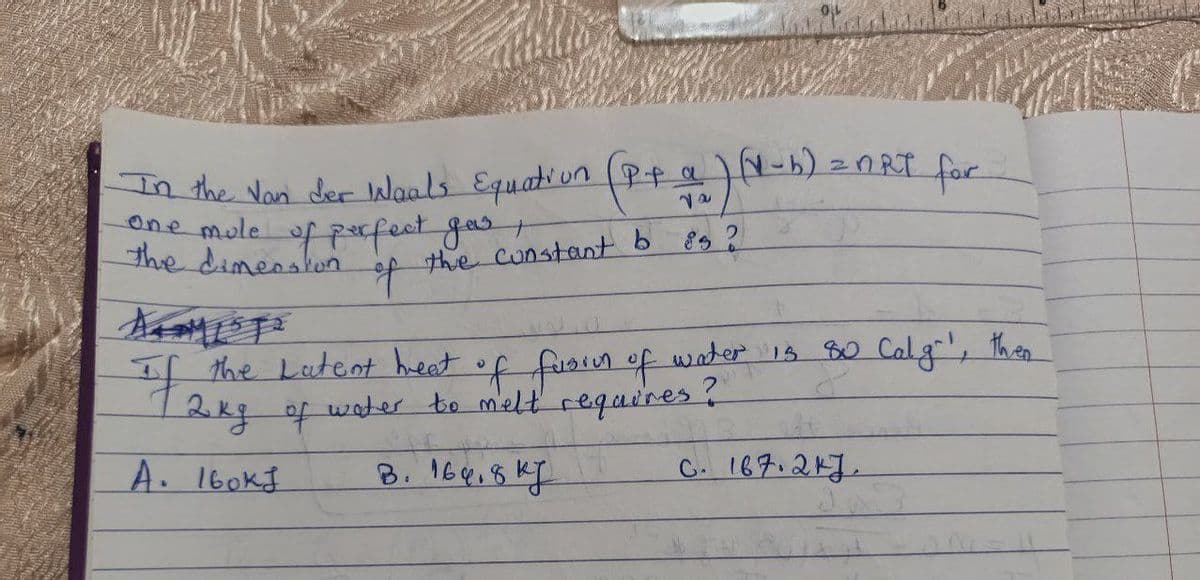 In the Van der Waals Equation (P+ a/V²) (V-b) = nRT for
one mole of perfect gas,
the dimension of the constant b is?
If the Latent heat of fusion of water is 80 Cal g⁻¹, then
2kg of water to melt requires?
A. 160kJ B. 164.8 kJ C. 167.2kJ.